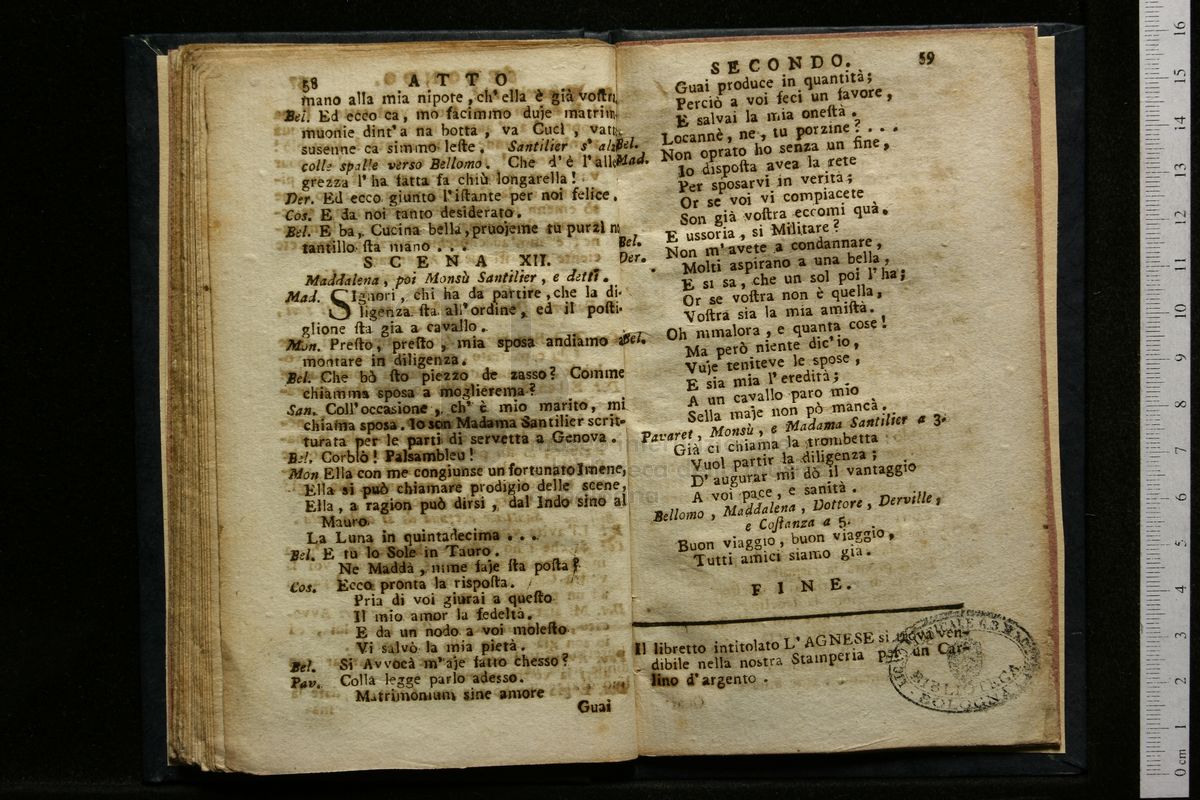 58 ATTO
mano alla mia nipote, ch'ella è già vostra
Bel. Ed ecco ca, mo facimmo duje matrim-
muonie dint'a na botta, va Cucì, vatt
susenne ca simmo leste. Santilier s'alza
colle spalle verso Bellomo. Che d'è l'alle-
grezza l'ha fatta fa chiù longarella!
Der. Ed ecco giunto l'istante per noi felice.
Cos. E da noi tanto desiderato.
Bel. E ba, Cucina bella, pruojeme tu purzì
tantillo sta mano...
SCENA XII.
Maddalena, poi Monsù Santilier, e detti.
Mad. SIgnori, chi ha da partire, che la di-
ligenza sta all'ordine, ed il posti-
glione sta gia a cavallo.
Mon. Presto, presto, mia sposa andiamo a
montare in diligenza.
Bel. Che bò sto piezzo de zasso? Comme
chiamma sposa a moglierema?
San. Coll'occasione, ch'è mio marito, mi
chiama sposa. Io son Madama Santilier scrit-
turata per le parti di servetta a Genova.
Bel. Corblò! Palsambleu!
Mon Ella con me congiunse un fortunato Imene,
Ella si può chiamare prodigio delle scene,
Ella, a ragion può dirsi, dal Indo sino al
Mauro
La Luna in quintadecima...
Bel. E tu lo Sole in Tauro.
Ne Maddà, mme faje sta posta?
Cos. Ecco pronta la risposta.
Pria di voi giurai a questo
Il mio amor la fedeltà.
E da un nodo a voi molesto
Vi salvò la mia pietà.
Bel. Si Avvocà m'aje fatto chesso?
Pav. Colla legge parlo adesso.
Matrimonium sine amore
Guai
SECONDO. 59
Guai produce in quantità;
Perciò a voi feci un favore,
E salvai la mia onestà.
Bel. Locannè, ne, tu porzine?...
Mad. Non oprato ho senza un fine,
Io disposta avea la rete
Per sposarvi in verità;
Or se voi vi compiacete
Son già vostra eccomi quà.
Bel. E ussoria, si Militare?
Der. Non m'avete a condannare,
Molti aspirano a una bella,
E si sa, che un sol poi l'ha;
Or se vostra non è quella,
Vostra sia la mia amistà.
Bel. Oh mmalora, e quanta cose!
Ma però niente dic'io,
Vuje teniteve le spose,
E sia mia l'eredità;
A un cavallo paro mio
Sella maje non pò mancà.
Pavaret, Monsù, e Madama Santilier a 3.
Già ci chiama la trombetta
Vuol partir la diligenza;
D'augurar mi dò il vantaggio
A voi pace, e sanità.
Bellomo, Maddalena, Dottore, Derville,
e Costanza a 5.
Buon viaggio, buon viaggio,
Tutti amici siamo già.
FINE.
Il libretto intitolato L'AGNESE si trova ven-
dibile nella nostra Stamperia per un Car-
lino d'argento.
BIBLIOTECA
BOLOGNA